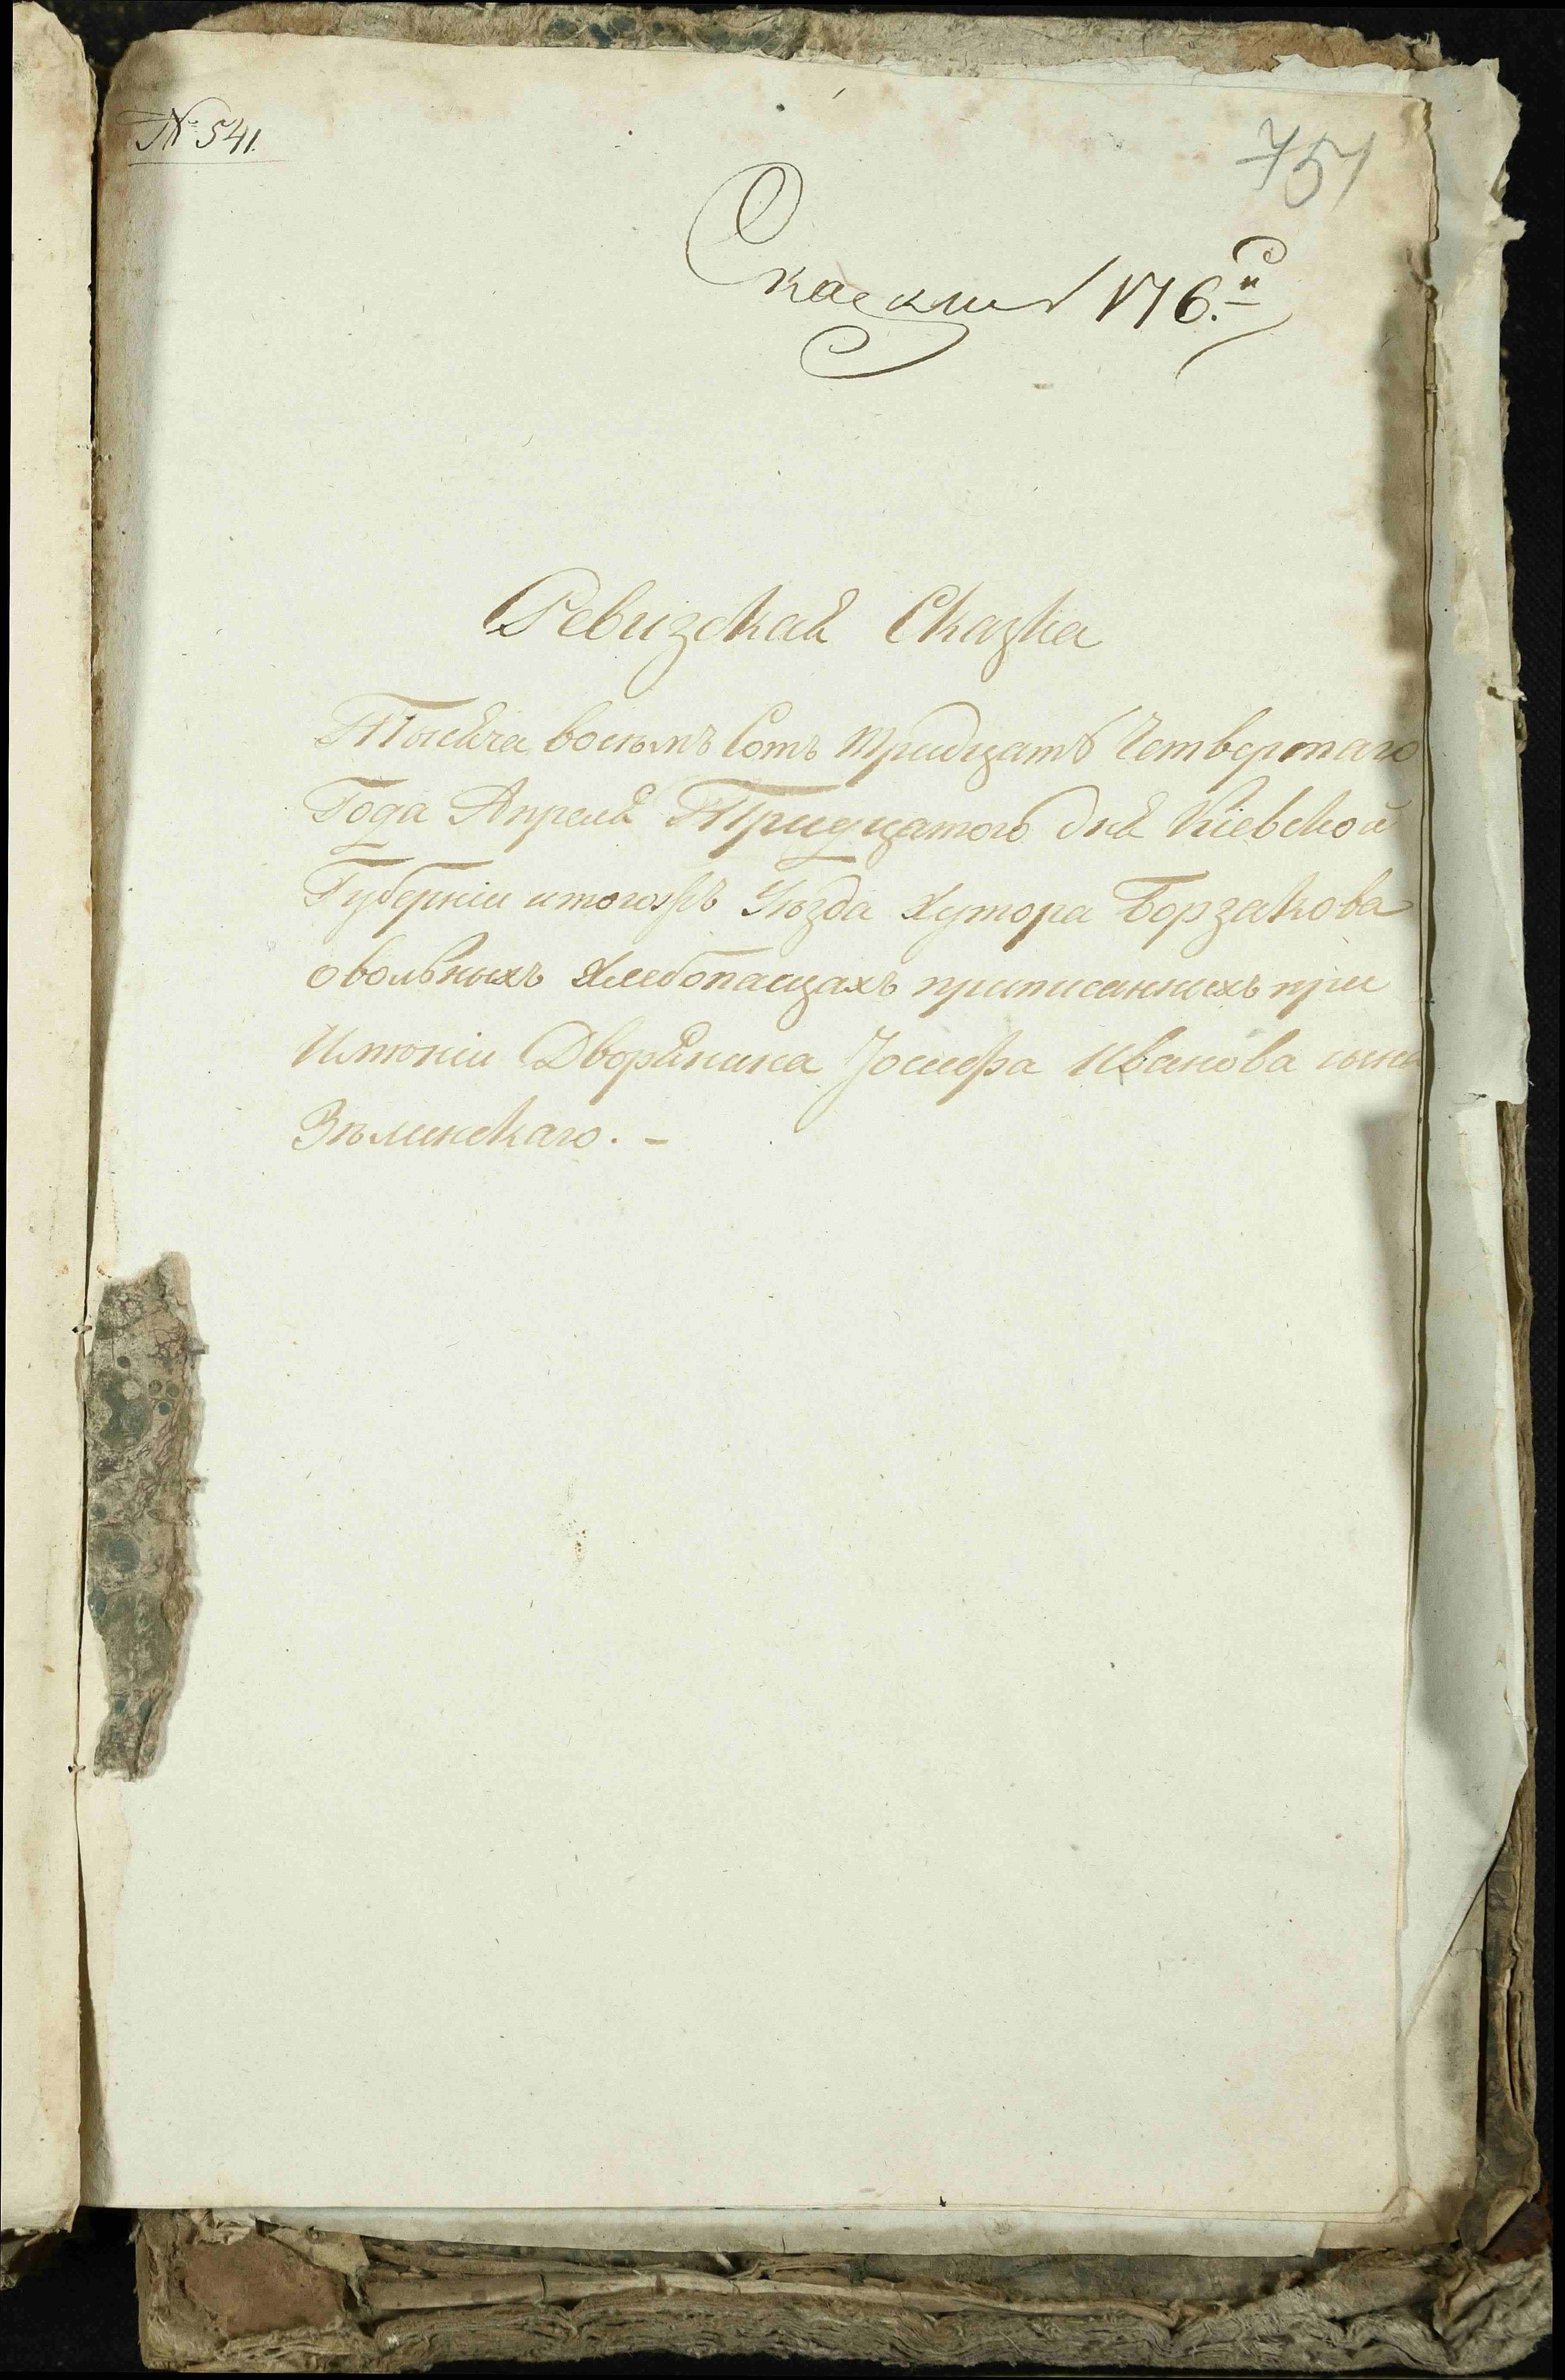 № 541.
751
Скаски 176.я
Ревизская Сказка
Тысяча восьмъ Сотъ тридцать Четвертаго
Года Апреля Тридцатого дня Кіевской
Губерніи итогожъ Уѣзда Хутора Борзакова
овольныхъ Хлебопашцахъ приписанныхъ при
Имѣніи Дворянина Іосифа Иванова сына
Зѣлинскаго. -